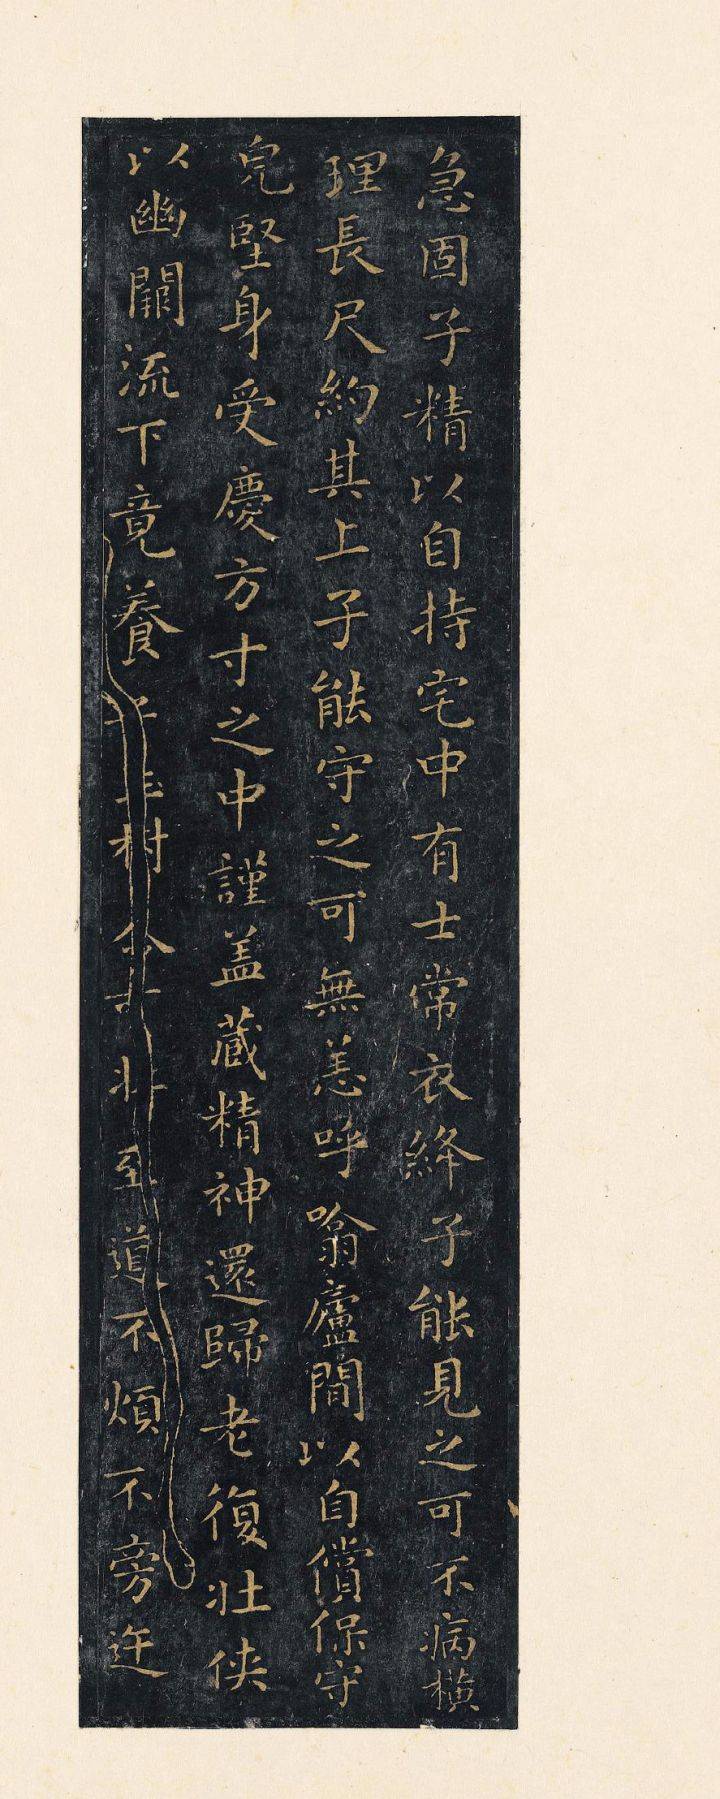 急固子精以自持宅中有士常衣絳子能見之可不病橫
理長尺約其上子能守之可無恙呼噏廬間以自償保守
完堅身受慶方寸之中謹盖藏精神還歸老復壯俠
以幽闕流下竟養子玉樹令可壯至道不煩不旁迕